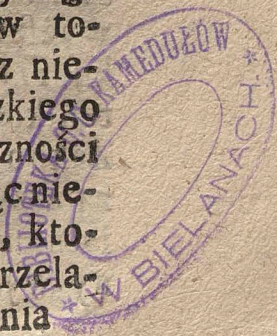 w to-
z nie-
zkiego
zności
ąc nie-
, kto-
rzela-
nia
KAMEDUŁÓW
* W BIELANACH *